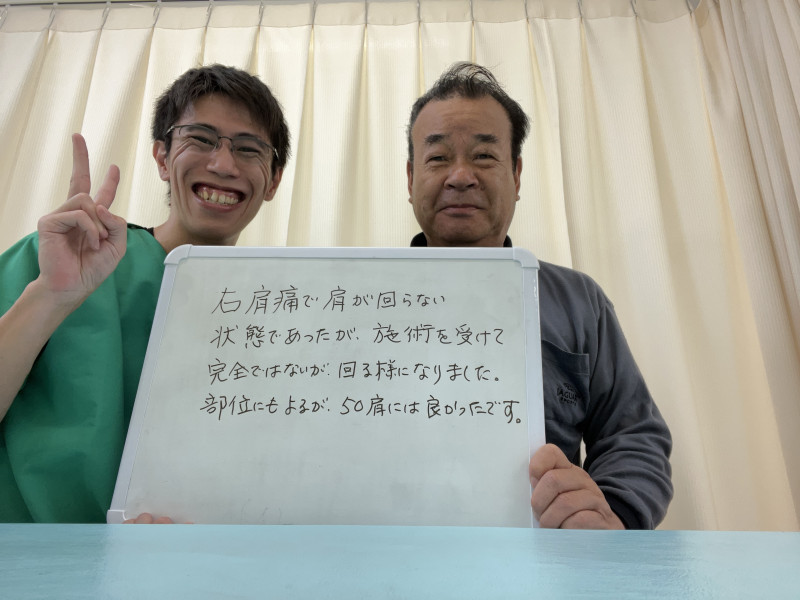 右肩痛で肩が回らない
状態であったが、施術を受けて
完全ではないが、回る様になりました。
部位にもよるが、50肩には良かったです。